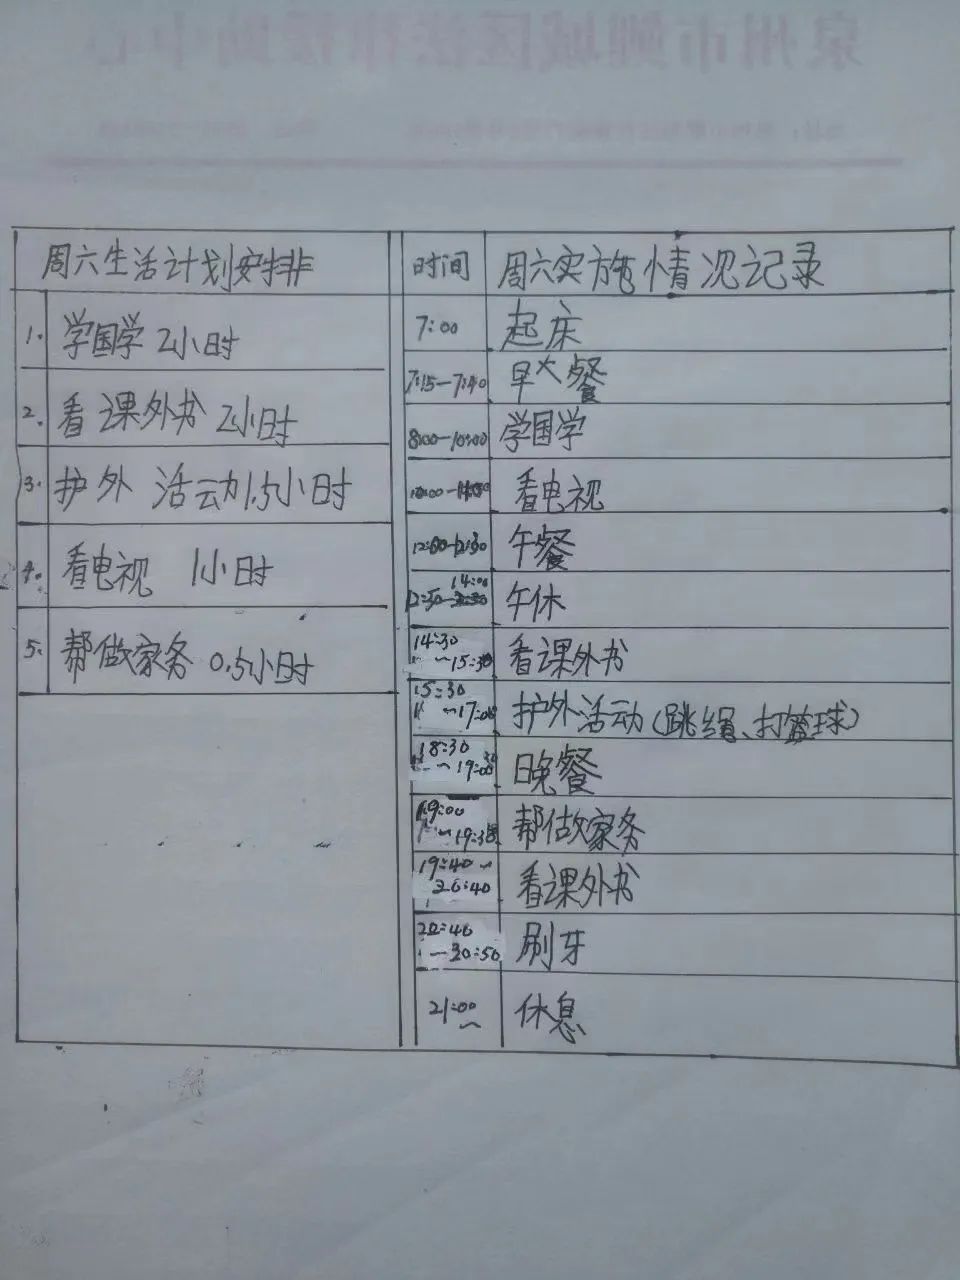 周六生活计划安排
1. 学国学 2小时
2. 看课外书 2小时
3. 护外 活动1.5小时
4. 看电视 1小时
5. 帮做家务 0.5小时
时间 周六实施情况记录
7:00 起床
7:15-7:40 早餐
8:00-10:00 学国学
看电视
12:00-12:30 午餐
午休
14:30~15:30 看课外书
15:30~17:00 护外活动(跳绳、打篮球)
18:30 晚餐
19:00~19:30 帮做家务
19:40~20:40 看课外书
刷牙
21:00~ 休息
泉州市鲤城区法律援助中心